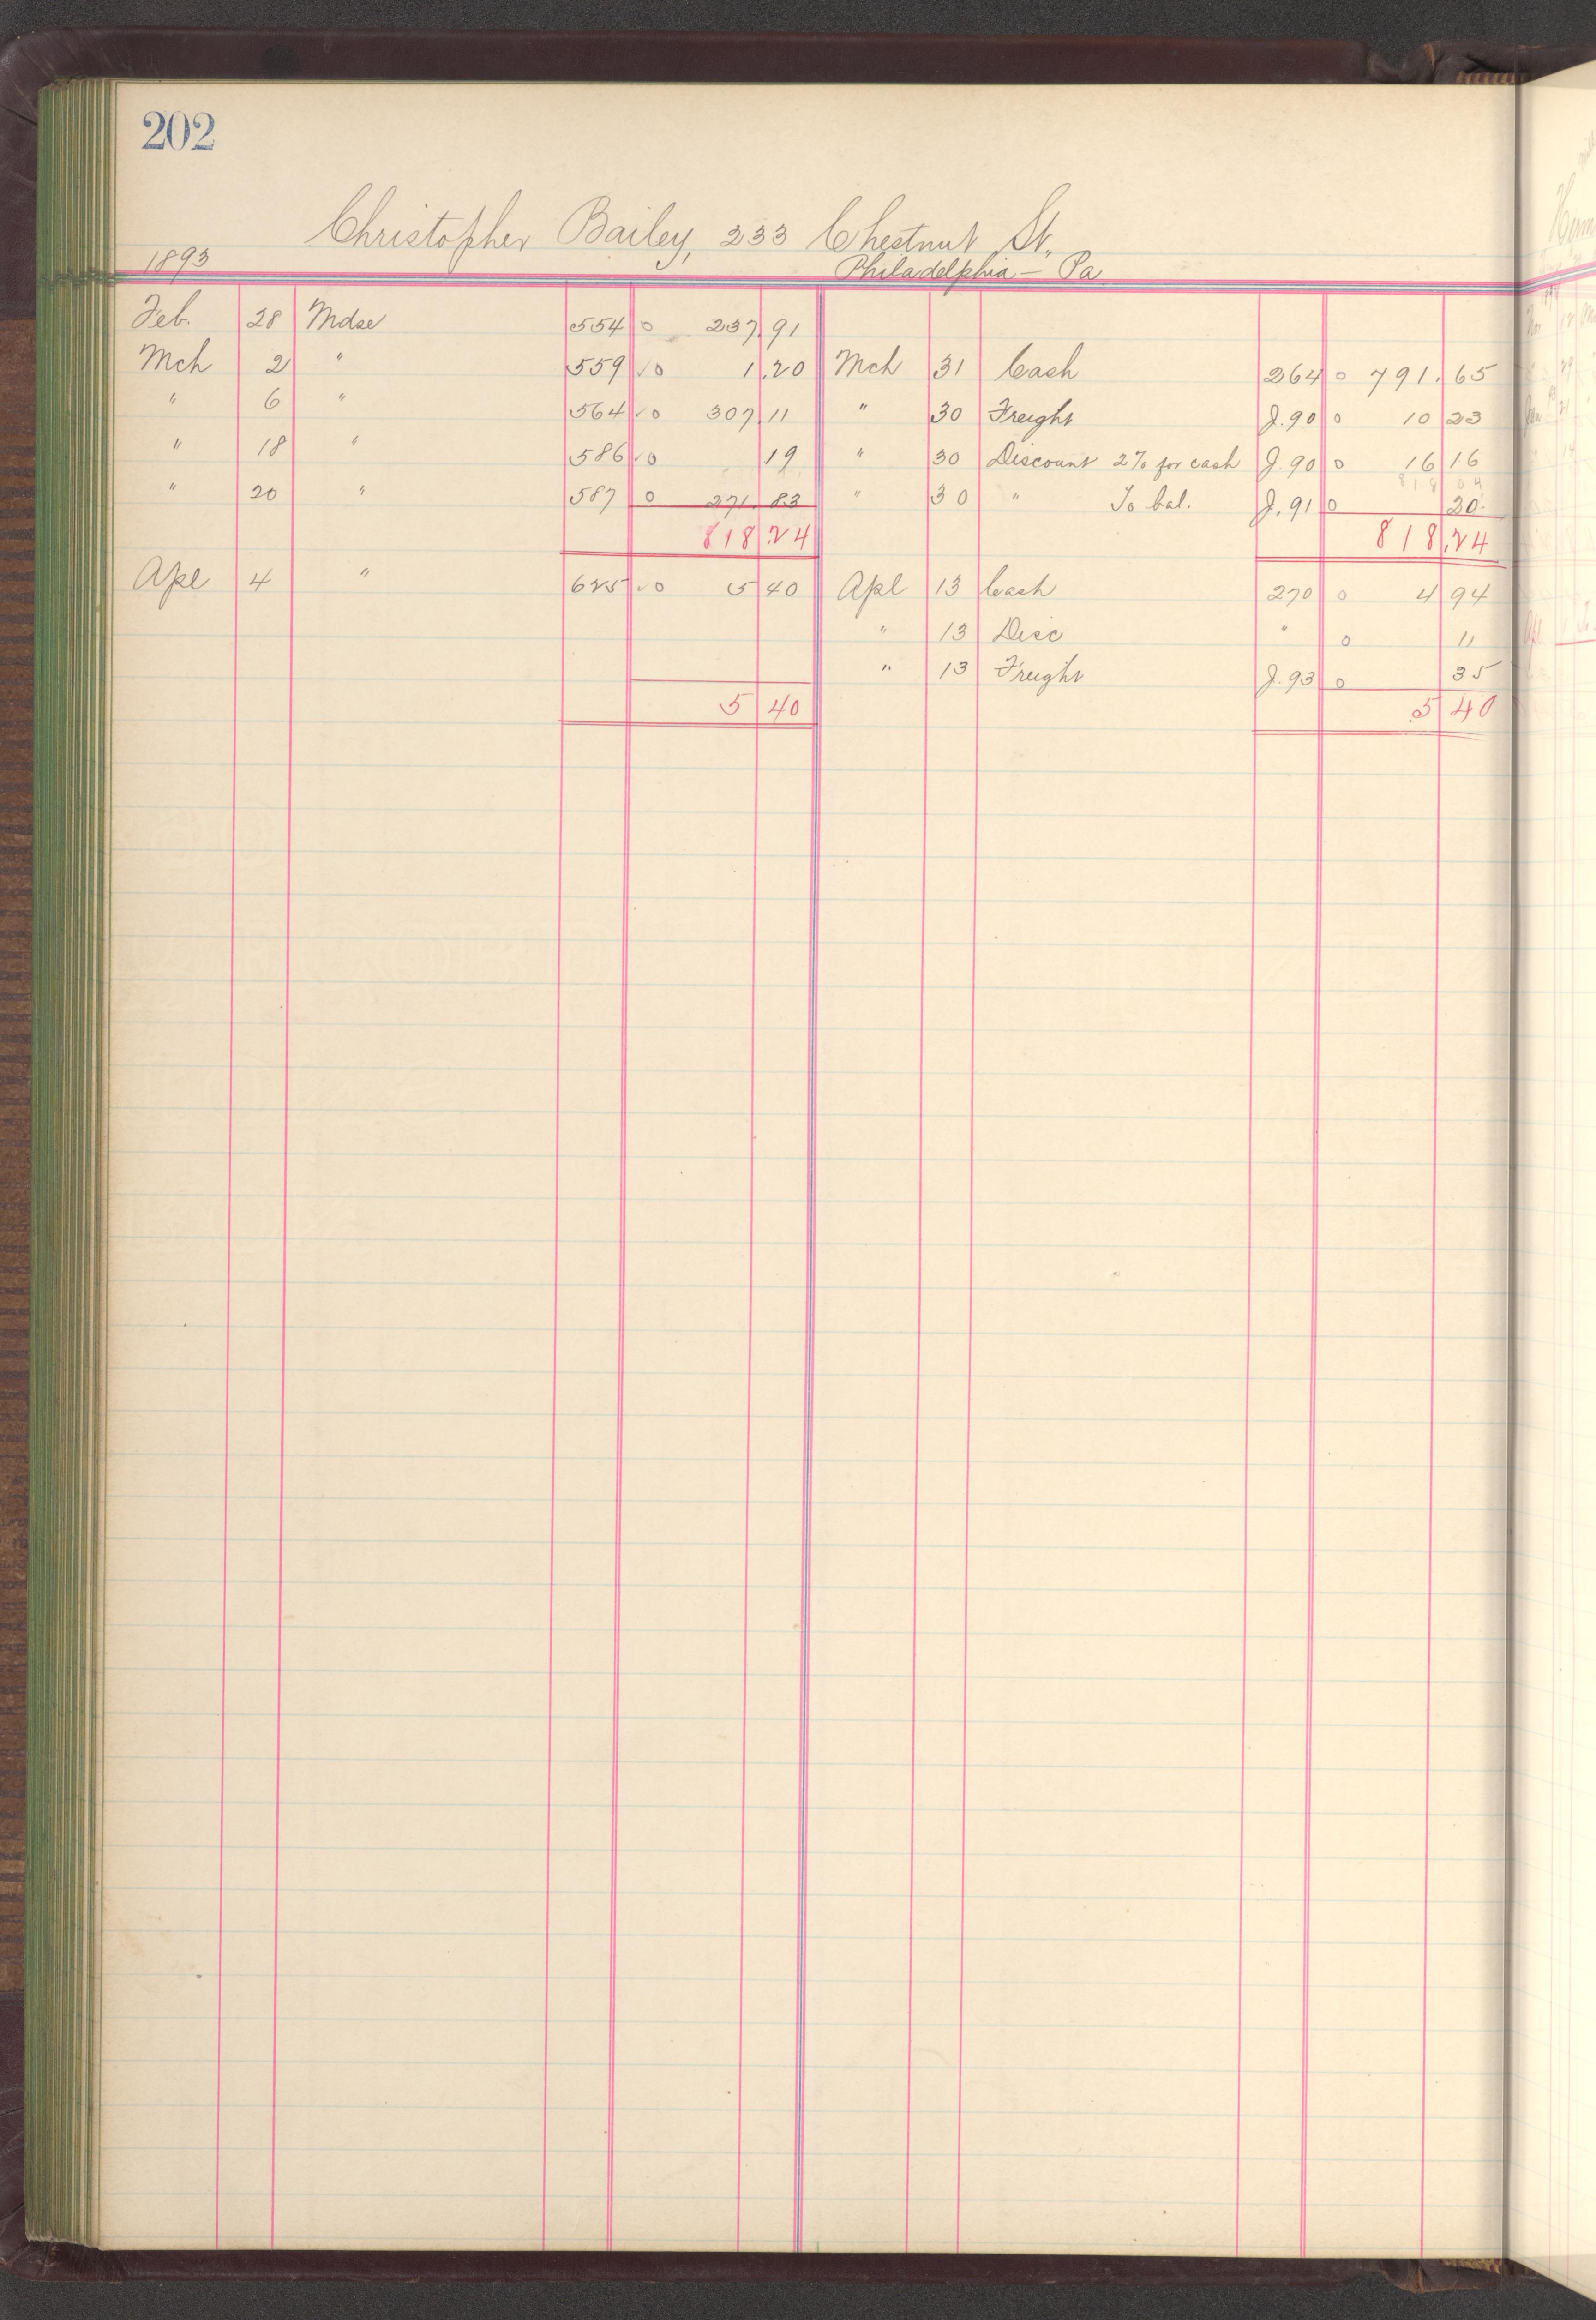 202
Christopher Bailey, 233 Chestnut St.,
1893 Philadelphia — Pa
Feb. 28 Mdse 554 0 237.91
Mch 2 " 559 ✓0 1.20 Mch 31 Cash 264 0 791.65
" 6 " 564 ✓0 307 11 " 30 Freight J.90 0 10 23
" 18 " 586 ✓0 19 " 30 Discount 2% for cash J.90 0 16 16
818 04
" 20 " 587 0 271.83 " 30 " To bal. J.91 0 20
818.24 818.24
Apl 4 " 625 ✓0 5 40 Apl 13 Cash 270 0 4 94
" 13 Disc " 0 11
" 13 Freight J.93 0 35
5 40 5 40